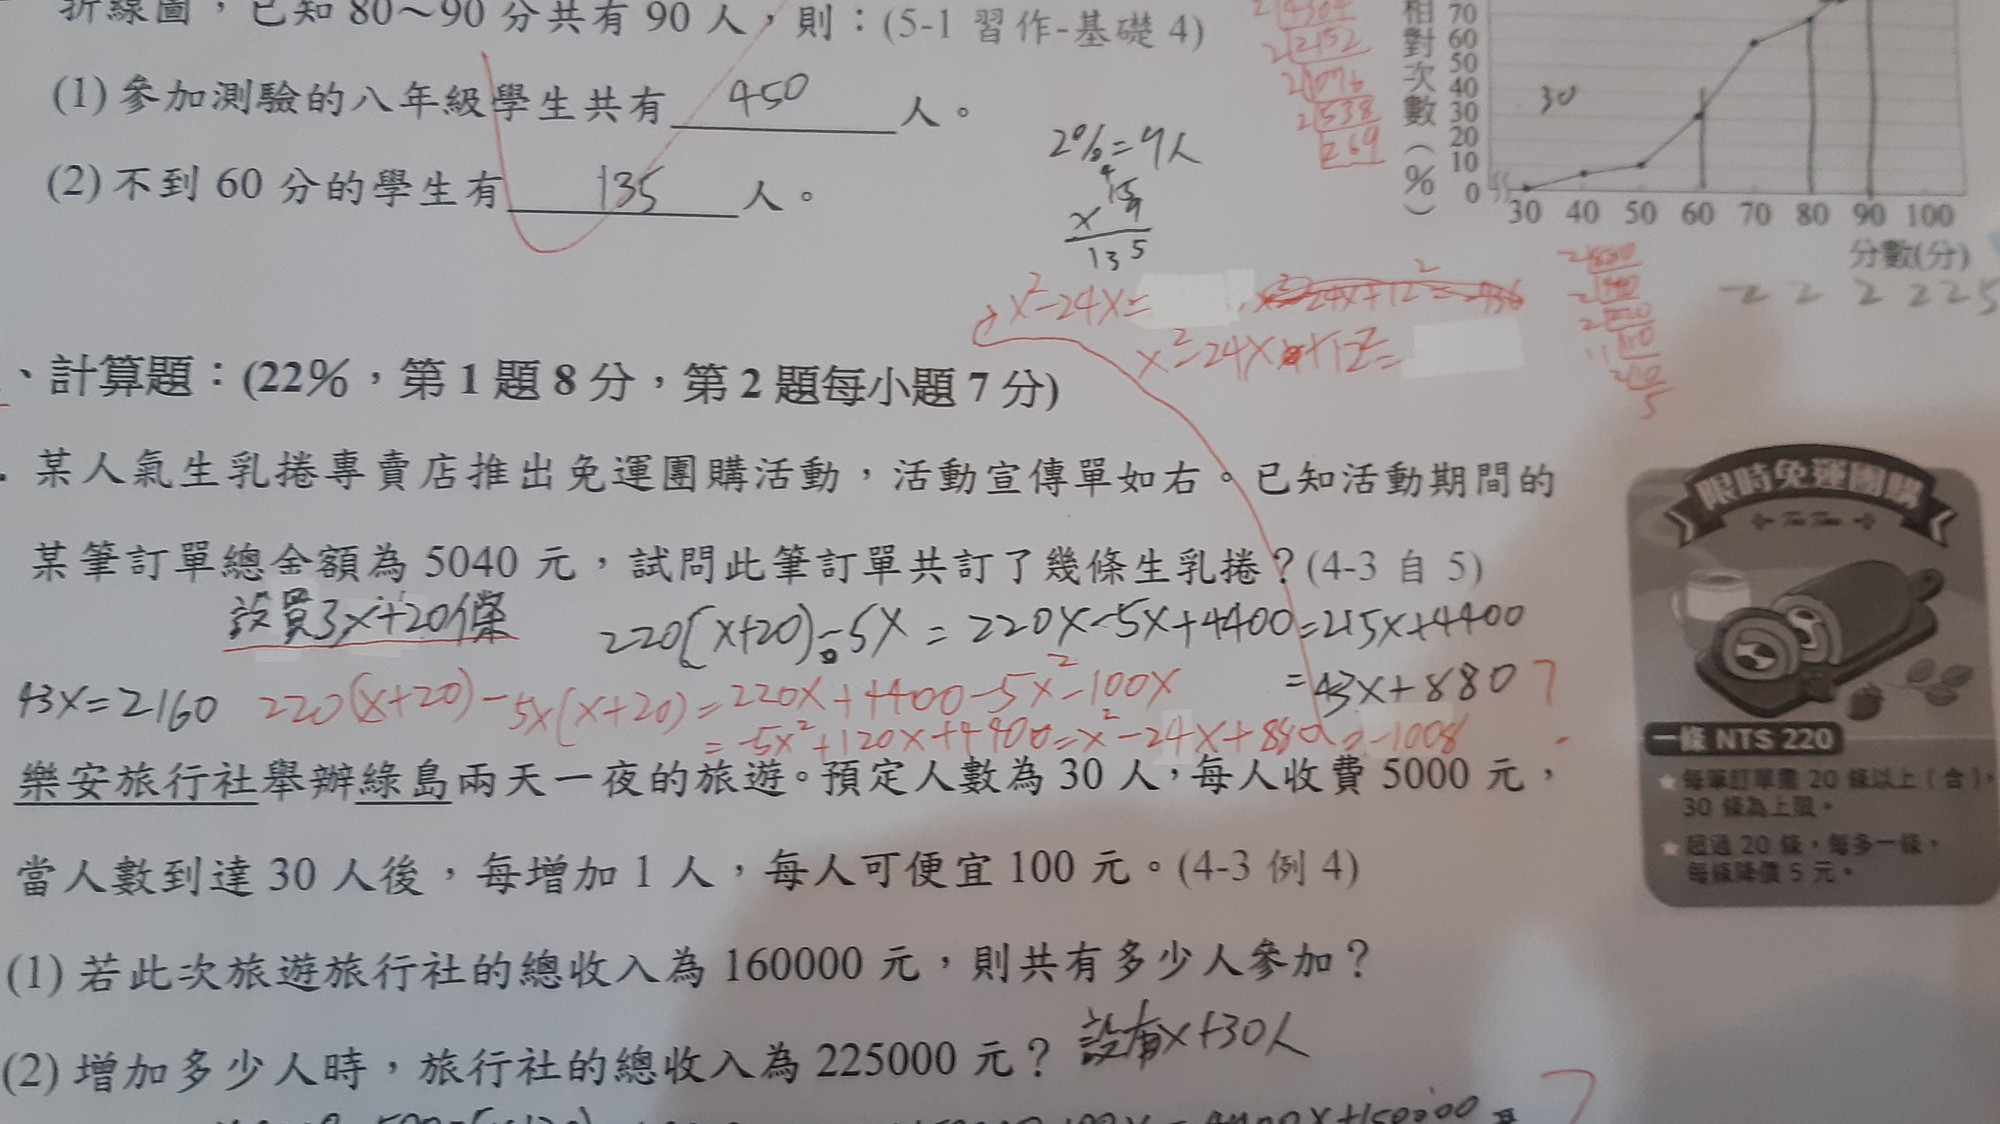 折線圖，已知 80～90 分共有 90 人，則：(5-1 習作-基礎 4)
(1) 參加測驗的八年級學生共有 450 人。
(2) 不到 60 分的學生有 135 人。
2%=9人
135
2 4304
2 2152
2 1076
2 538
269
相對次數（%）
70
60
50
40
30
20
10
0
30
30 40 50 60 70 80 90 100
分數(分)
2 2 2 2 2 5
x²-24x=
x²-24x+12²=
、計算題：(22%，第 1 題 8 分，第 2 題每小題 7 分)
. 某人氣生乳捲專賣店推出免運團購活動，活動宣傳單如右。已知活動期間的
某筆訂單總金額為 5040 元，試問此筆訂單共訂了幾條生乳捲？(4-3 自 5)
設買3x+20條
220(x+20)-5x=220x-5x+4400=215x+4400
=43x+880
43x=2160
220(x+20)-5x(x+20)=220x+4400-5x²-100x
=-5x²+120x+4400=x²-24x+880=-1008
限時免運團購
Tea Time
一條 NT$ 220
★ 每筆訂單需 20 條以上（含），
30 條為上限。
★ 超過 20 條，每多一條，
每條降價 5 元。
樂安旅行社舉辦綠島兩天一夜的旅遊。預定人數為 30 人，每人收費 5000 元，
當人數到達 30 人後，每增加 1 人，每人可便宜 100 元。(4-3 例 4)
(1) 若此次旅遊旅行社的總收入為 160000 元，則共有多少人參加？
(2) 增加多少人時，旅行社的總收入為 225000 元？
設有x+30人